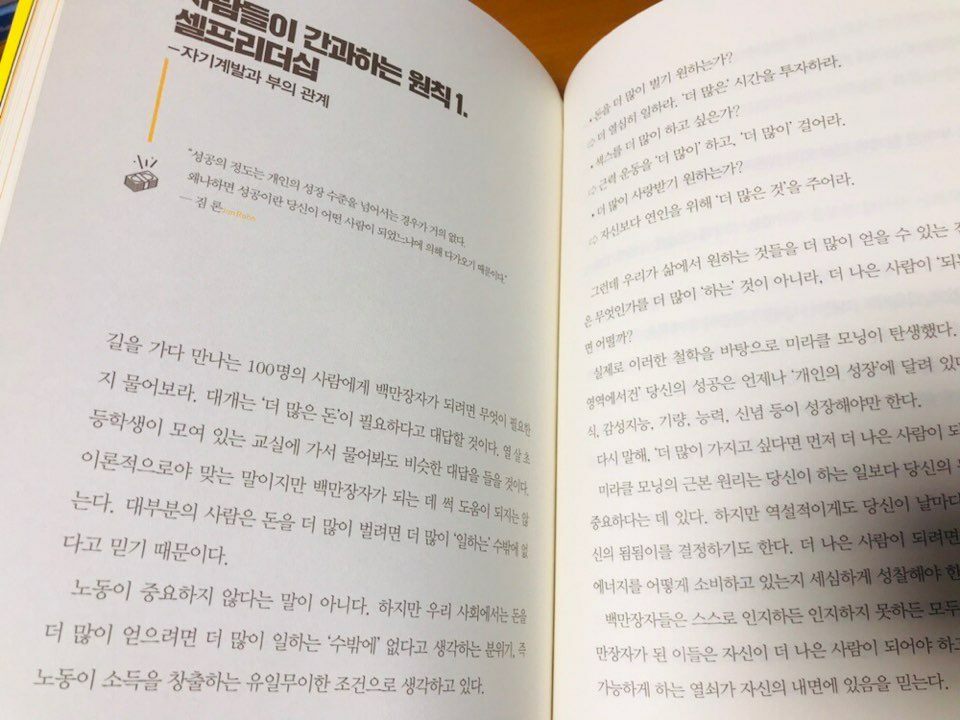 사람들이 간과하는 원칙 1.
셀프리더십
-자기계발과 부의 관계
"성공의 정도는 개인의 성장 수준을 넘어서는 경우가 거의 없다.
왜냐하면 성공이란 당신이 어떤 사람이 되었느냐에 의해 다가오기 때문이다."
― 짐 론Jim Rohn
길을 가다 만나는 100명의 사람에게 백만장자가 되려면 무엇이 필요한
지 물어보라. 대개는 '더 많은 돈'이 필요하다고 대답할 것이다. 열 살 초
등학생이 모여 있는 교실에 가서 물어봐도 비슷한 대답을 들을 것이다.
이론적으로야 맞는 말이지만 백만장자가 되는 데 썩 도움이 되지는 않
는다. 대부분의 사람은 돈을 더 많이 벌려면 더 많이 '일하는' 수밖에 없
다고 믿기 때문이다.
노동이 중요하지 않다는 말이 아니다. 하지만 우리 사회에서는 돈을
더 많이 얻으려면 더 많이 일하는 '수밖에' 없다고 생각하는 분위기, 즉
노동이 소득을 창출하는 유일무이한 조건으로 생각하고 있다.
• 돈을 더 많이 벌기 원하는가?
⇨ 더 열심히 일하라. '더 많은' 시간을 투자하라.
• 섹스를 더 많이 하고 싶은가?
⇨ 근력 운동을 '더 많이' 하고, '더 많이' 걸어라.
• 더 많이 사랑받기 원하는가?
⇨ 자신보다 연인을 위해 '더 많은 것'을 주어라.
그런데 우리가 삶에서 원하는 것들을 더 많이 얻을 수 있는
은 무엇인가를 더 많이 '하는' 것이 아니라, 더 나은 사람이 '되는
면 어떨까?
실제로 이러한 철학을 바탕으로 미라클 모닝이 탄생했다.
영역에서건 당신의 성공은 언제나 '개인의 성장'에 달려 있다
식, 감성지능, 기량, 능력, 신념 등이 성장해야만 한다.
다시 말해, '더 많이 가지고 싶다면 먼저 더 나은 사람이 되
미라클 모닝의 근본 원리는 당신이 하는 일보다 당신의
중요하다는 데 있다. 하지만 역설적이게도 당신이 날마다
신의 됨됨이를 결정하기도 한다. 더 나은 사람이 되려면
에너지를 어떻게 소비하고 있는지 세심하게 성찰해야 한
백만장자들은 스스로 인지하든 인지하지 못하든 모두
만장자가 된 이들은 자신이 더 나은 사람이 되어야 하고
가능하게 하는 열쇠가 자신의 내면에 있음을 믿는다.